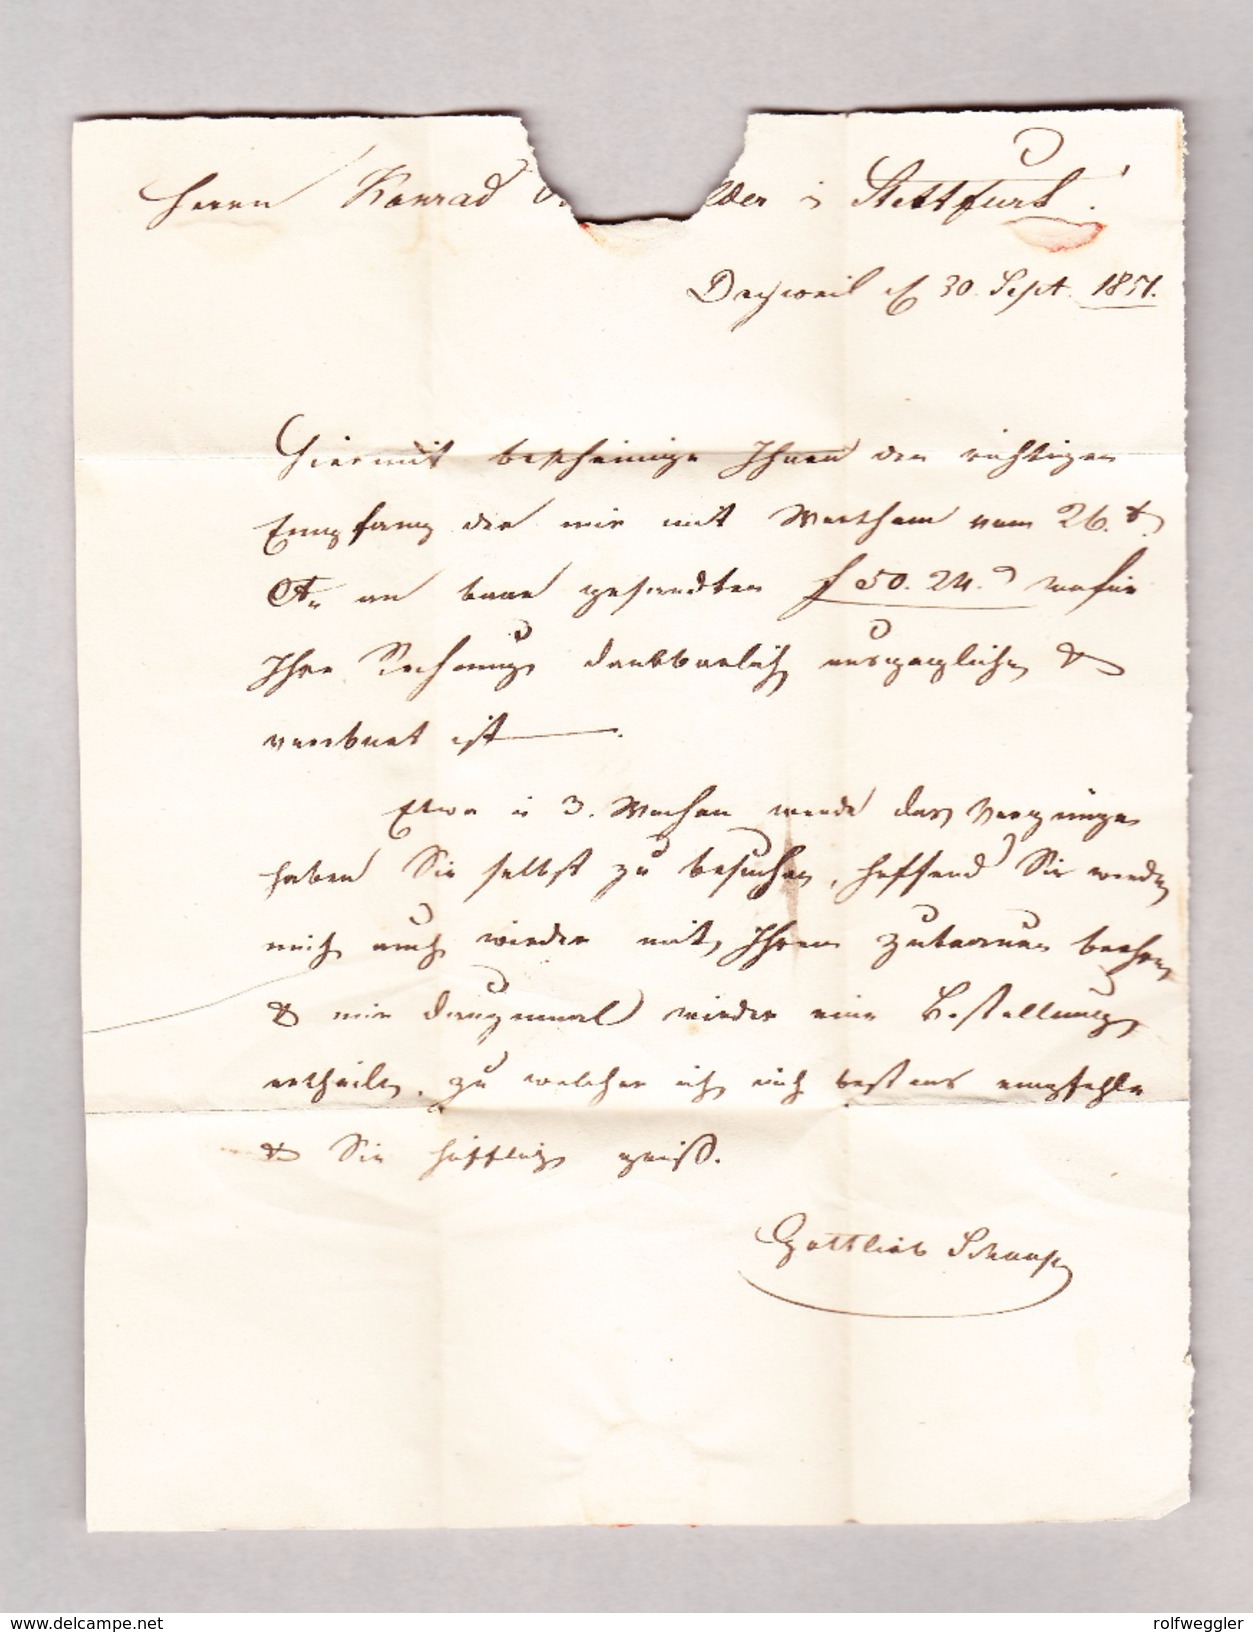 Herrn Konrad lder in Stettfurt!
Degweil d 30. Sept. 1851.
Hiermit bescheinige Ihnen den richtigen
Empfang der mir mit Werthem vom 26. d.
an baar gesandten f 50. 24. wofür
Ihre Rechnung dankbarlich ausgeglichen &
ist.
Etwa in 3. Wochen werde das Vergnügen
haben Sie selbst zu besuchen, hoffend Sie werden
mich auch wieder mit Ihrem Zutrauen beehren
& mir wieder eine Bestellung
ertheilen, zu welcher ich mich bestens empfehle
& Sie höfflich grüß.
Gottlieb
delcampe.net
rolfweggler